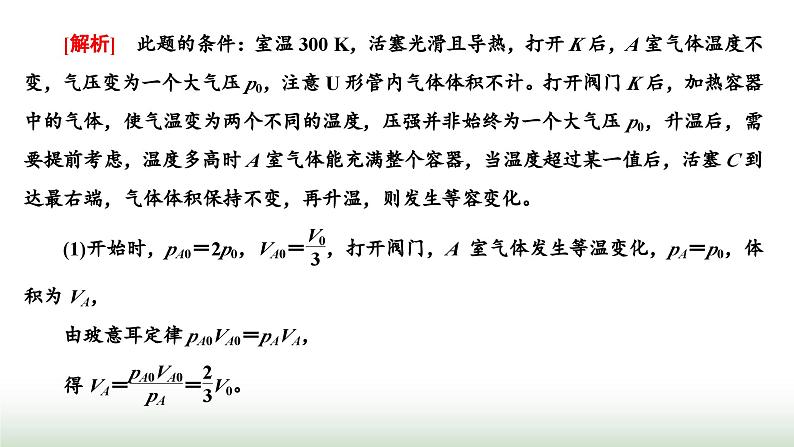 [解析] 此题的条件：室温 300 K，活塞光滑且导热，打开 K 后，A 室气体温度不
变，气压变为一个大气压 p₀，注意 U 形管内气体体积不计。打开阀门 K 后，加热容器
中的气体，使气温变为两个不同的温度，压强并非始终为一个大气压 p₀，升温后，需
要提前考虑，温度多高时 A 室气体能充满整个容器，当温度超过某一值后，活塞 C 到
达最右端，气体体积保持不变，再升温，则发生等容变化。
(1)开始时，pA0＝2p₀，VA0＝V₀/3，打开阀门，A 室气体发生等温变化，pA＝p₀，体
积为 VA，
由玻意耳定律 pA0VA0＝pAVA，
得 VA＝pA0VA0/pA＝2/3V₀。